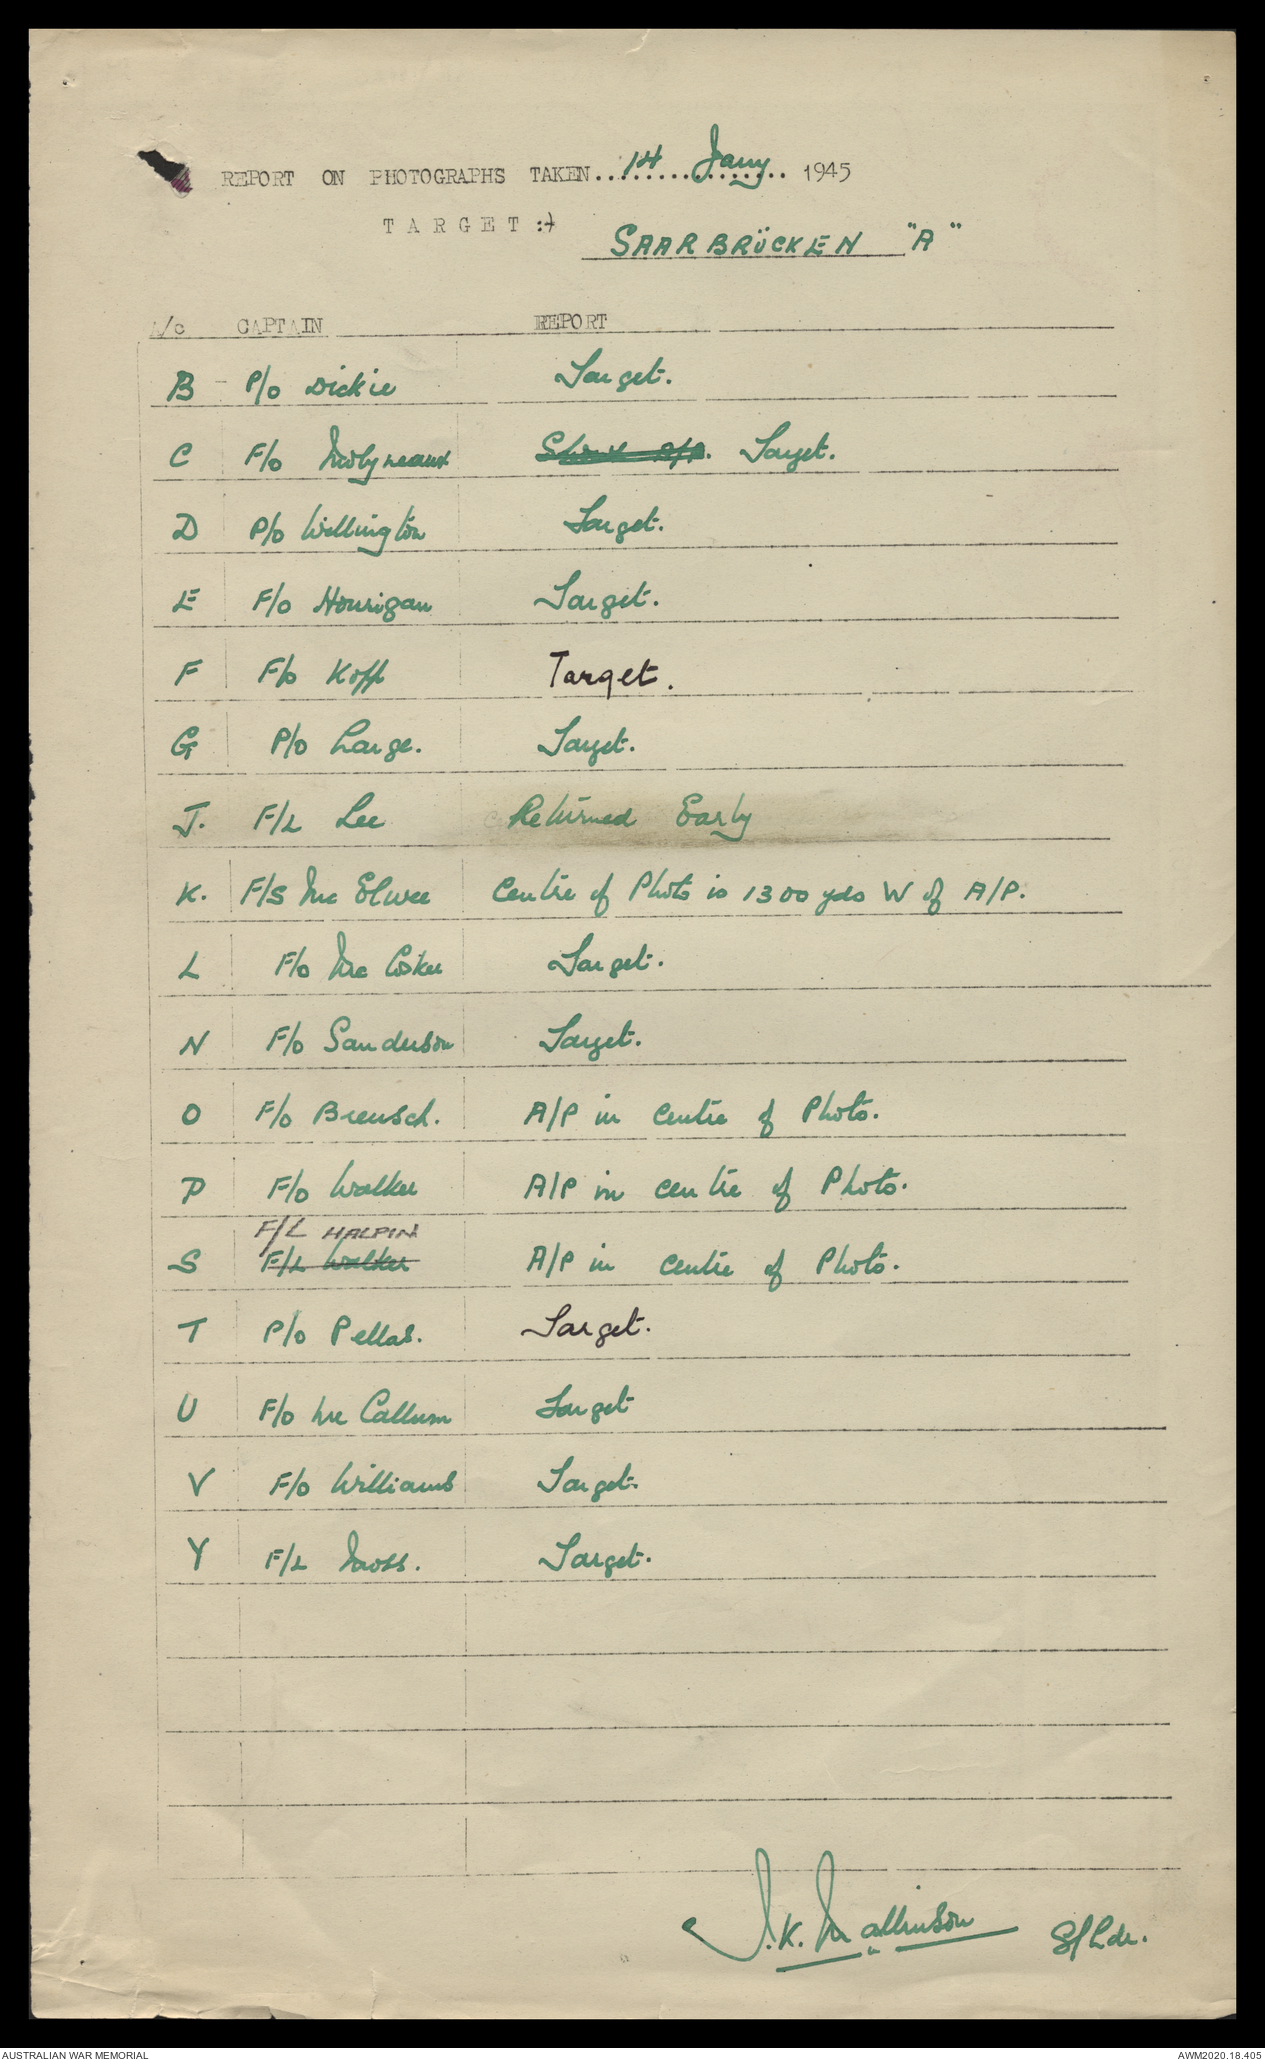 REPORT ON PHOTOGRAPHS TAKEN..14 Jany.. 1945
TARGET:-
SAARBRÜCKEN "A"
A/c CAPTAIN REPORT
B - P/O Dickie Target.
C F/O Molyneaux Short A/P. Target.
D P/O Wellington Target.
E F/O Hourigan Target.
F F/O Kopp Target.
G P/O Large. Target.
J. F/L Lee Returned Early
K. F/S Mc Elwee Centre of Photo is 1300 yds W of A/P.
L F/O Mc Cosker Target.
N F/O Sanderson Target.
O F/O Breusch. A/P in centre of Photo.
P F/O Walker A/P in centre of Photo.
F/L HALPIN
S F/L Walker A/P in centre of Photo.
T P/O Pellas. Target.
U F/O Mc Callum Target
V F/O Williams Target.
Y F/L Moss. Target.
K. Mallinson S/Ldr.
AUSTRALIAN WAR MEMORIAL AWM2020.18.405